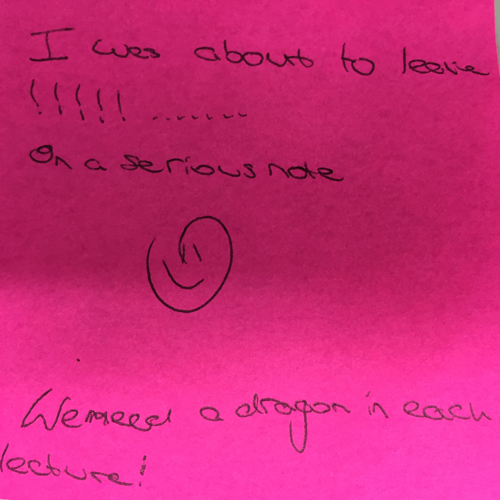 I was about to leave
!!!!! .......
On a serious note
We need a dragon in each
lecture!